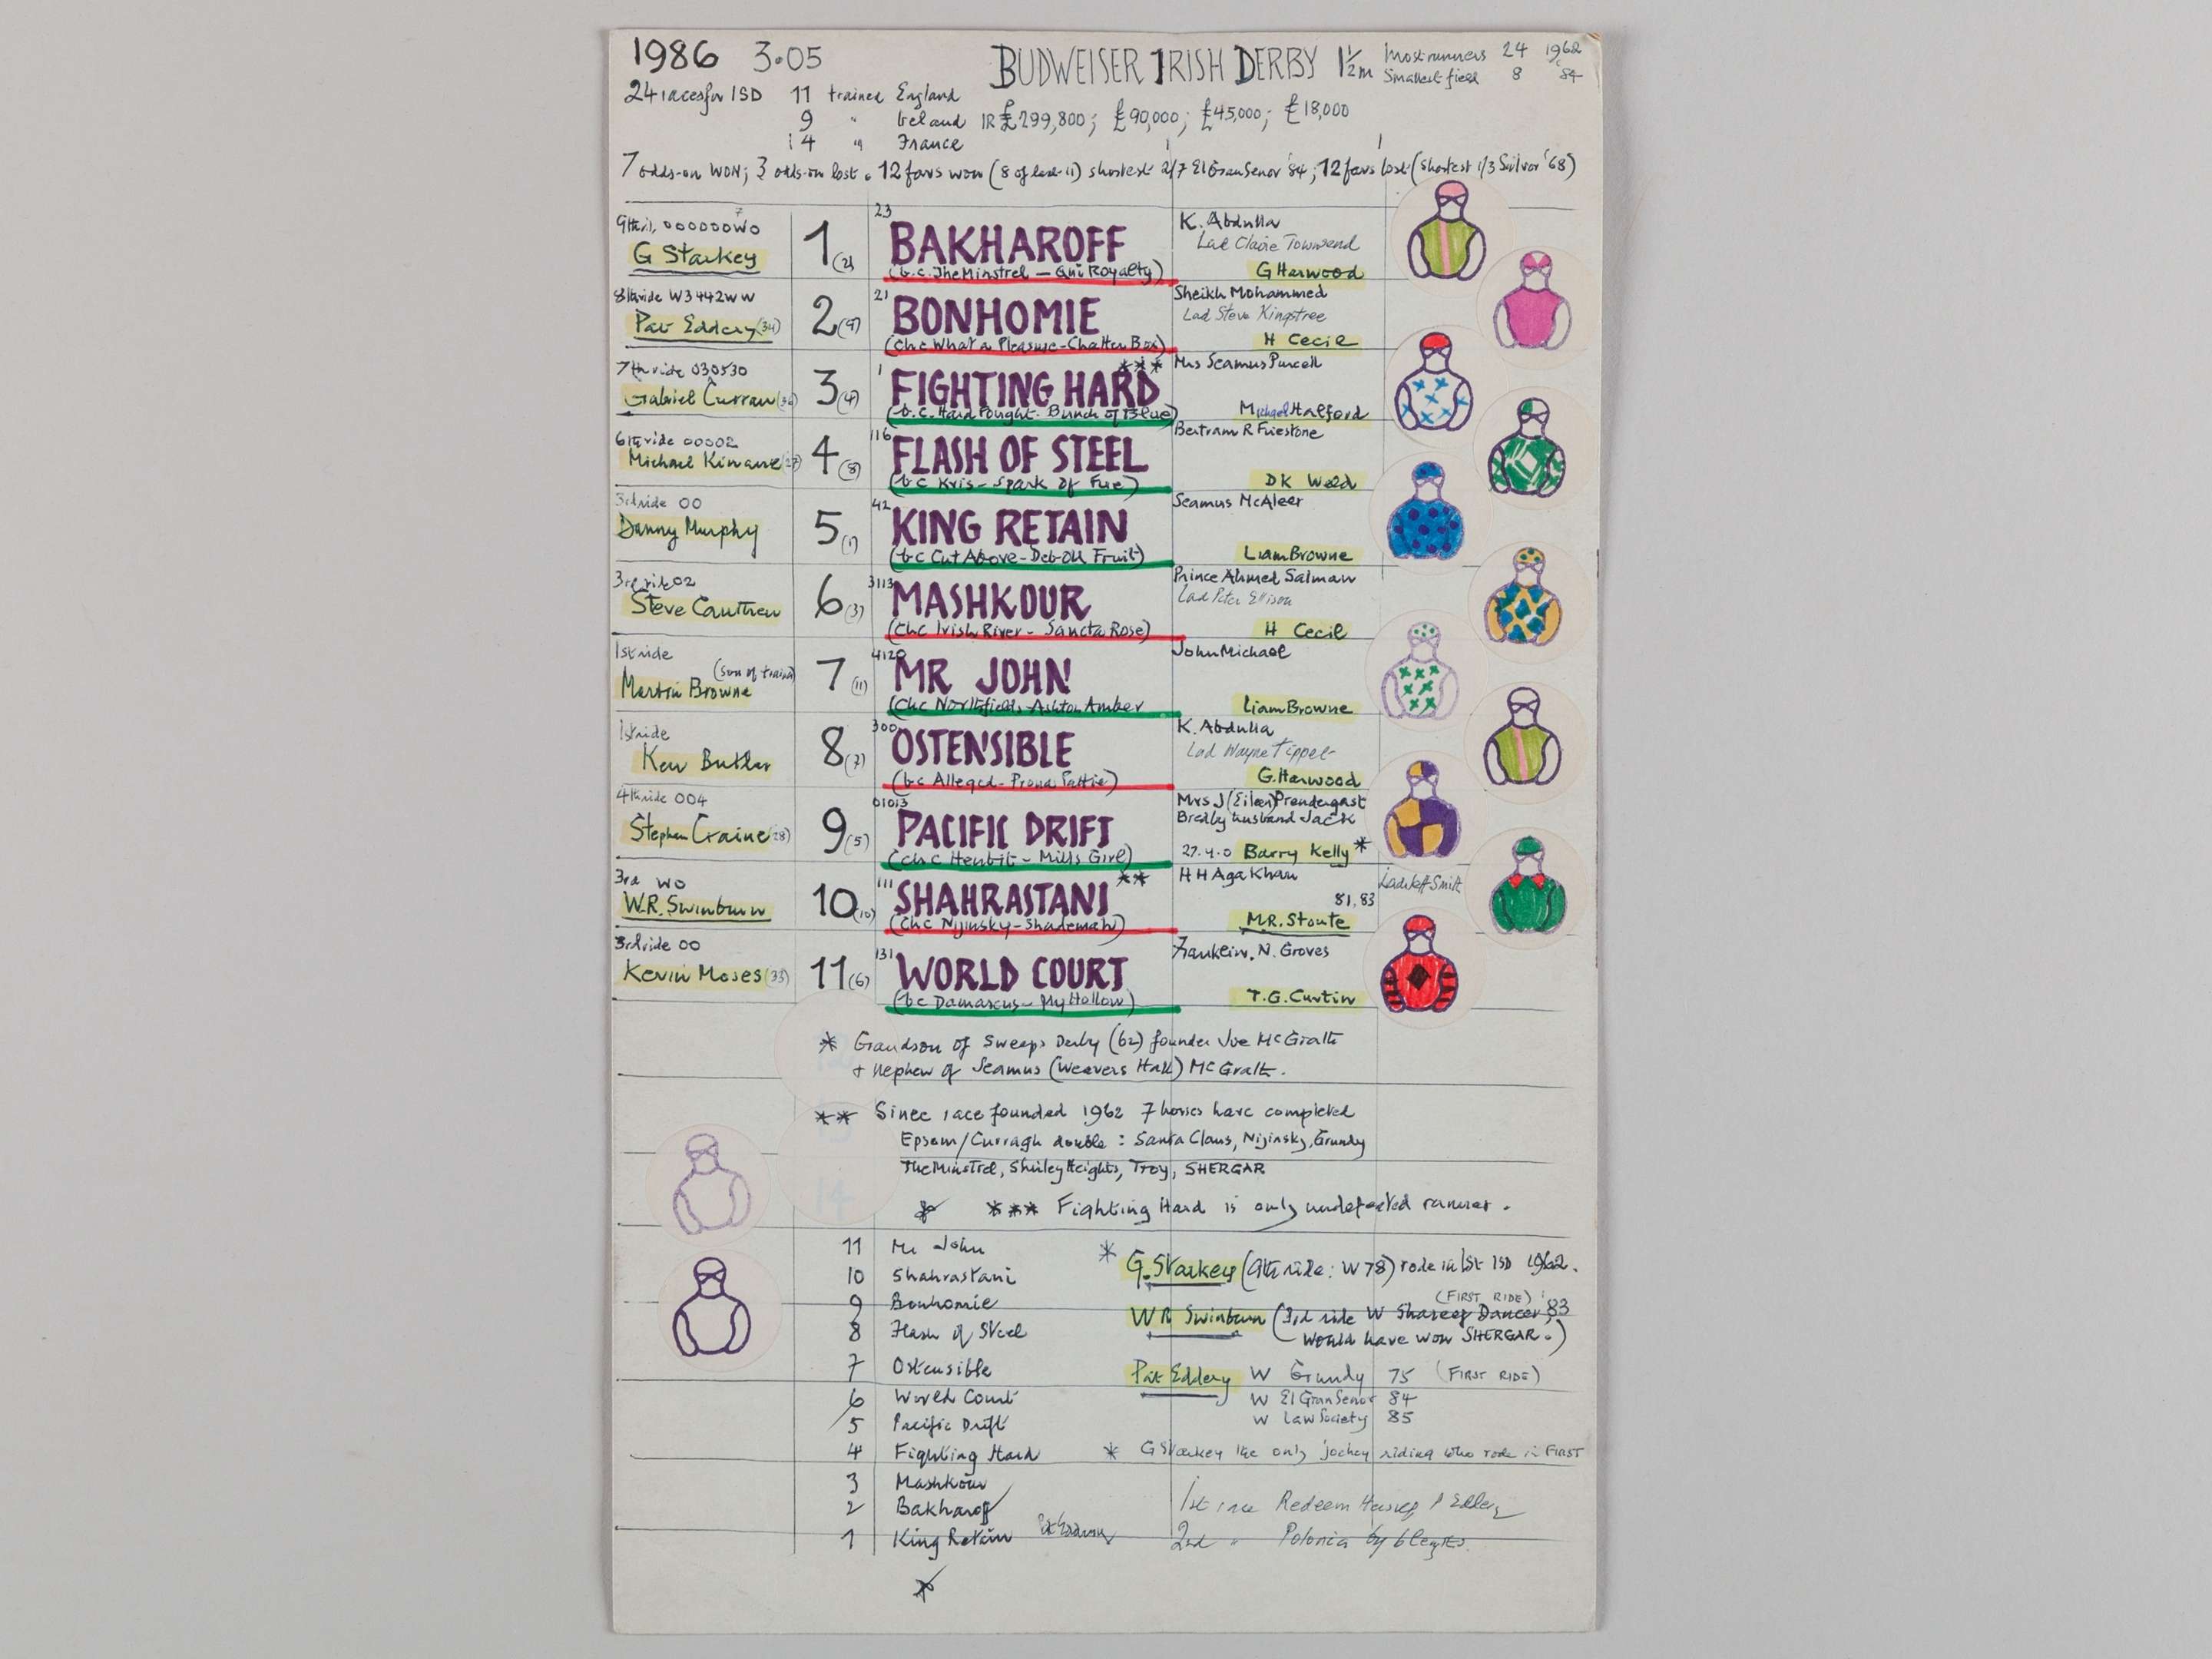 1986 3.05 BUDWEISER IRISH DERBY 1½m Most runners 24 1962
Smallest field 8 '84
24 races for ISD 11 trained England
9 " Ireland IR £299,800; £90,000; £45,000; £18,000
4 " France
7 odds-on WON; 3 odds-on lost. 12 favs won (8 of last 11) shortest 2/7 El Gran Senor '84; 12 favs lost (shortest 1/3 Sir Ivor '68)
9th ride 000000W0
7
G Starkey
1 (2)
23
BAKHAROFF
(b.c. The Minstrel - Qui Royalty)
K. Abdulla
Lad Claire Townsend
G Harwood
8th ride W3442WW
Pat Eddery (34)
2 (9)
21
BONHOMIE
(ch c What a Pleasure - Chatter Box)
Sheikh Mohammed
Lad Steve Kingstree
H Cecil
7th ride 030530
Gabriel Curran
3 (4)
1
***
FIGHTING HARD
(b.c. Hard Fought - Bunch of Blue)
Mrs Seamus Purcell
Michael Halford
6th ride 00002
Michael Kinane (27)
4 (8)
116
FLASH OF STEEL
(b c Kris - Spark of Fire)
Bertram R Firestone
DK Weld
3rd ride 00
Danny Murphy
5 (1)
42
KING RETAIN
(b c Cut Above - Deb-Oh Fruit)
Seamus McAleer
Liam Browne
3rd ride 02
Steve Cauthen
6 (3)
3113
MASHKOUR
(ch c Irish River - Sancta Rose)
Prince Ahmed Salman
Lad Peter Ellison
H Cecil
1st ride
(son of trainer)
Martin Browne
7 (11)
4120
MR JOHN
(ch c Northfields - Ashton Amber
John Michael
Liam Browne
1st ride
Ken Butler
8 (7)
300
OSTENSIBLE
(b c Alleged - Proud Pattie)
K. Abdulla
Lad Wayne Tippet
G. Harwood
4th ride 004
Stephen Craine (28)
9 (5)
01013
PACIFIC DRIFT
(ch c Henbit - Mills Girl)
Mrs J (Eileen) Prendergast
Bred by husband Jack
27.4.0 Barry Kelly *
3rd W0
W.R. Swinburn
10 (10)
111
**
SHAHRASTANI
(ch c Nijinsky - Shademah)
H H Aga Khan
81, 83
M.R. Stoute
Lad Jeff Smith
3rd ride 00
Kevin Moses (33)
11 (6)
131
WORLD COURT
(b c Damascus - My Hollow)
Franklin. N. Groves
T.G. Curtin
* Grandson of Sweeps Derby (62) founder Joe McGrath
+ nephew of Seamus (Weavers Hall) McGrath.
** Since race founded 1962 7 horses have completed
Epsom/Curragh double: Santa Claus, Nijinsky, Grundy
The Minstrel, Shirley Heights, Troy, SHERGAR
14
*** Fighting Hard is only undefeated runner.
11 Mr John
10 Shahrastani
9 Bonhomie
8 Flash of Steel
7 Ostensible
6 World Court
5 Pacific Drift
4 Fighting Hard
3 Mashkour
2 Bakharoff
1 King Retain Pat Eddery
* G. Starkey (9th ride: W 78) rode in 1st ISD 1962.
(FIRST RIDE)
WR Swinburn (3rd ride W Shareef Dancer, 83
would have won SHERGAR.)
Pat Eddery W Grundy 75 (FIRST RIDE)
W El Gran Senor 84
W Law Society 85
* G Starkey the only jockey riding who rode in FIRST
1st race Redeem Herself P Eddery
2nd " Polonia by 6 lengths.